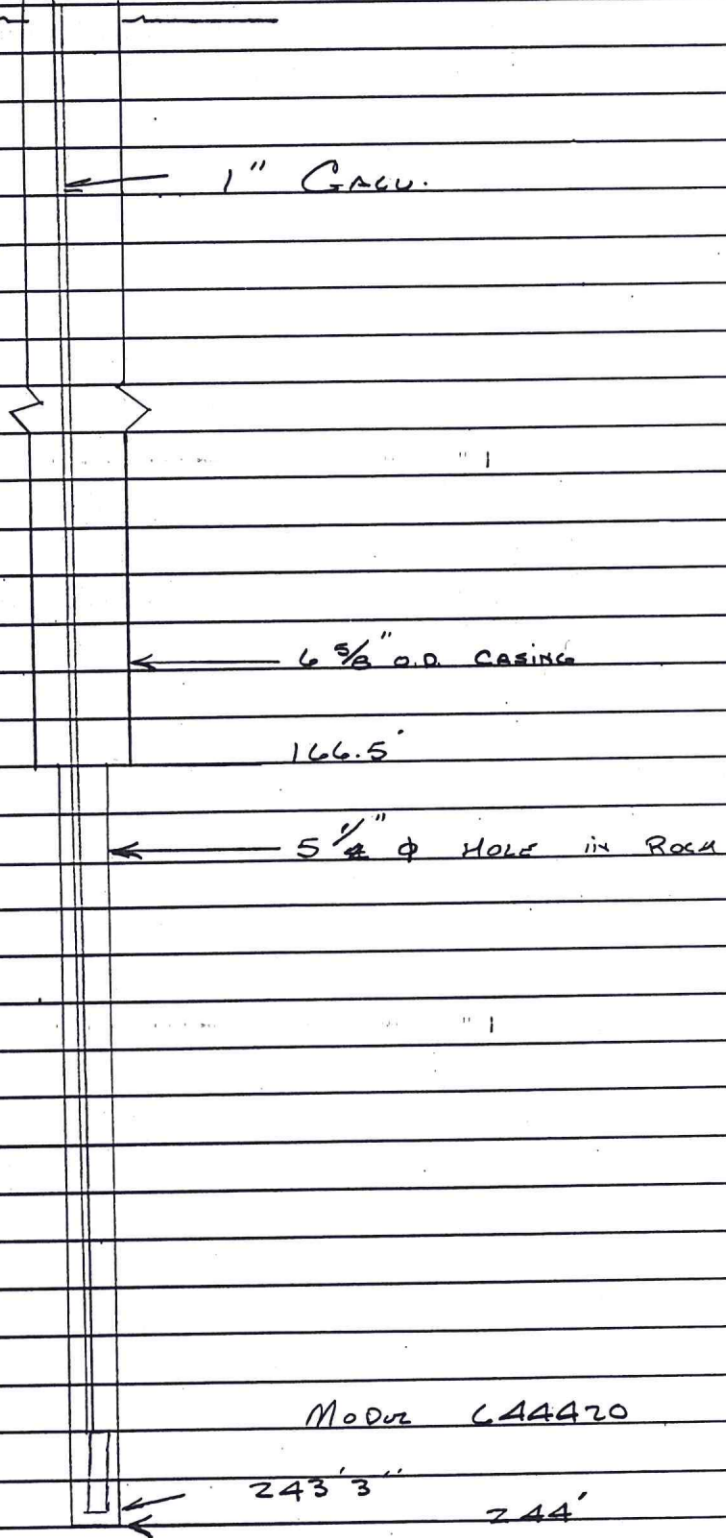 1" GALV.
6 5/8" O.D. CASING
166.5'
5 1/4" φ HOLE IN ROCK
MODEL 644420
243'3"
244'